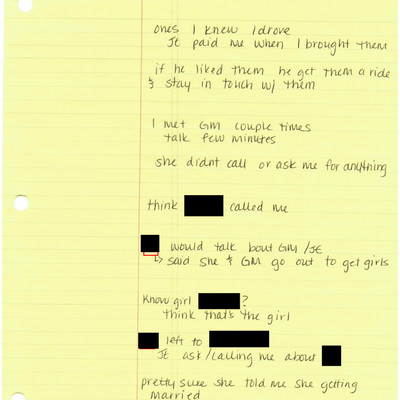 ones I knew I drove
JE paid me when I brought them
if he liked them he get them a ride
& stay in touch w/ them
I met GM couple times
talk few minutes
she didnt call or ask me for anything
think called me
would talk bout GM/JE
↳ said she & GM go out to get girls
Know girl ?
think that's the girl
left to
JE ask/calling me about
pretty sure she told me she getting
married